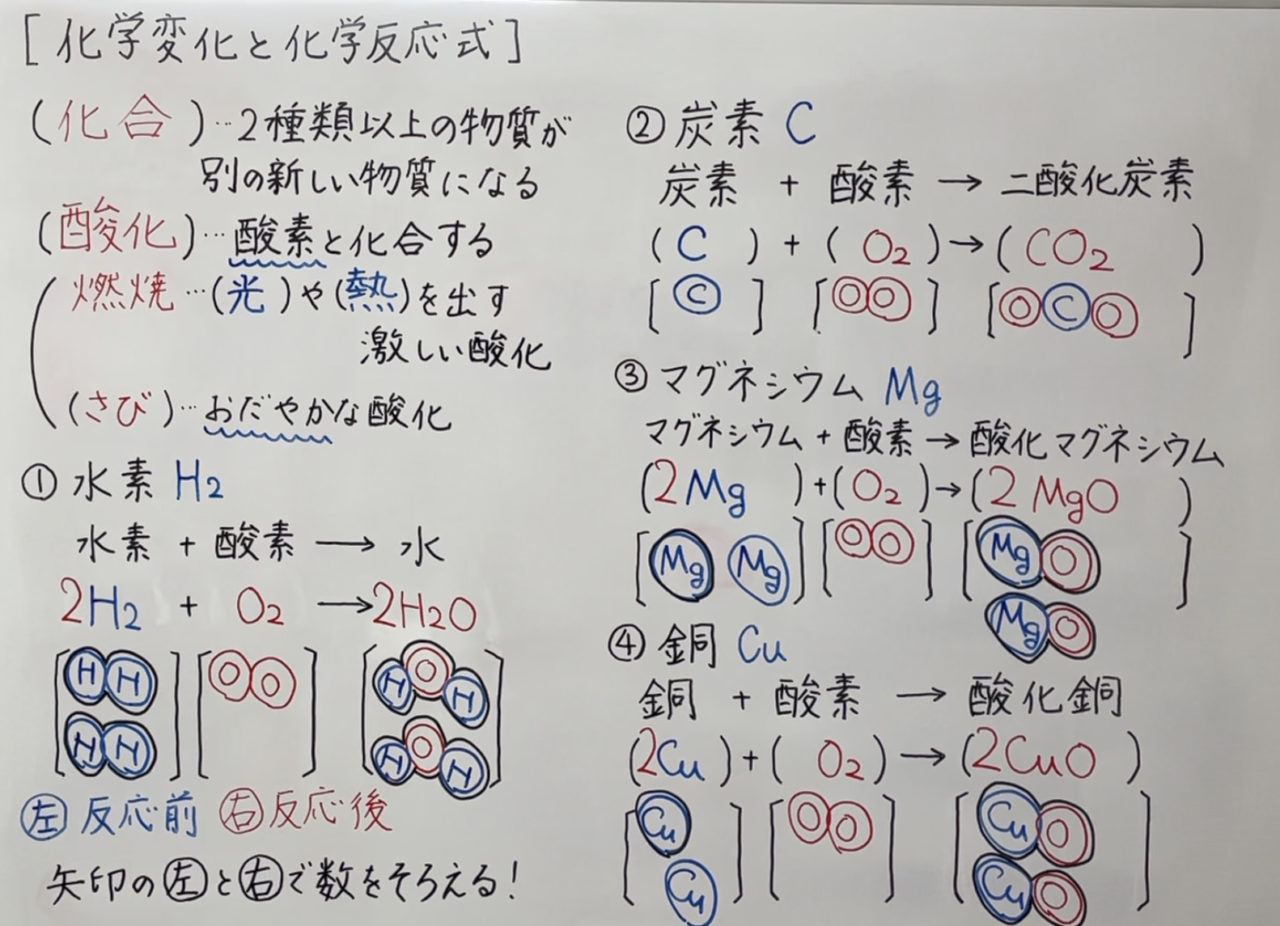 [化学変化と化学反応式]
(化合)…2種類以上の物質が
別の新しい物質になる
(酸化)…酸素と化合する
燃焼…(光)や(熱)を出す
激しい酸化
(さび)…おだやかな酸化
① 水素 H2
水素 + 酸素 → 水
2H2 + O2 → 2H2O
[HH HH] [OO] [HOH HOH]
左 反応前 右 反応後
矢印の左と右で数をそろえる!
② 炭素 C
炭素 + 酸素 → 二酸化炭素
(C) + (O2) → (CO2)
[C] [OO] [OCO]
③ マグネシウム Mg
マグネシウム + 酸素 → 酸化マグネシウム
(2Mg) + (O2) → (2MgO)
[Mg Mg] [OO] [MgO
MgO]
④ 銅 Cu
銅 + 酸素 → 酸化銅
(2Cu) + (O2) → (2CuO)
[Cu [OO] [CuO
Cu] CuO]